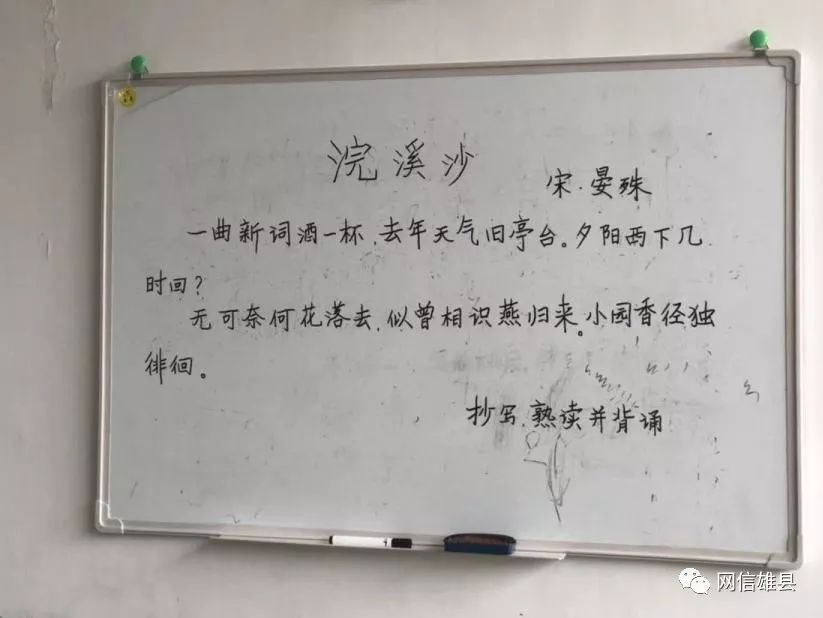 浣溪沙
宋·晏殊
一曲新词酒一杯,去年天气旧亭台。夕阳西下几
时回?
无可奈何花落去,似曾相识燕归来。小园香径独
徘徊。
抄写.熟读并背诵
网信雄县